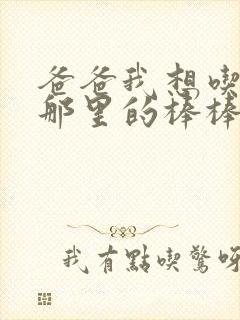 爸爸我想喫
那里的棒棒
我有點喫驚呀